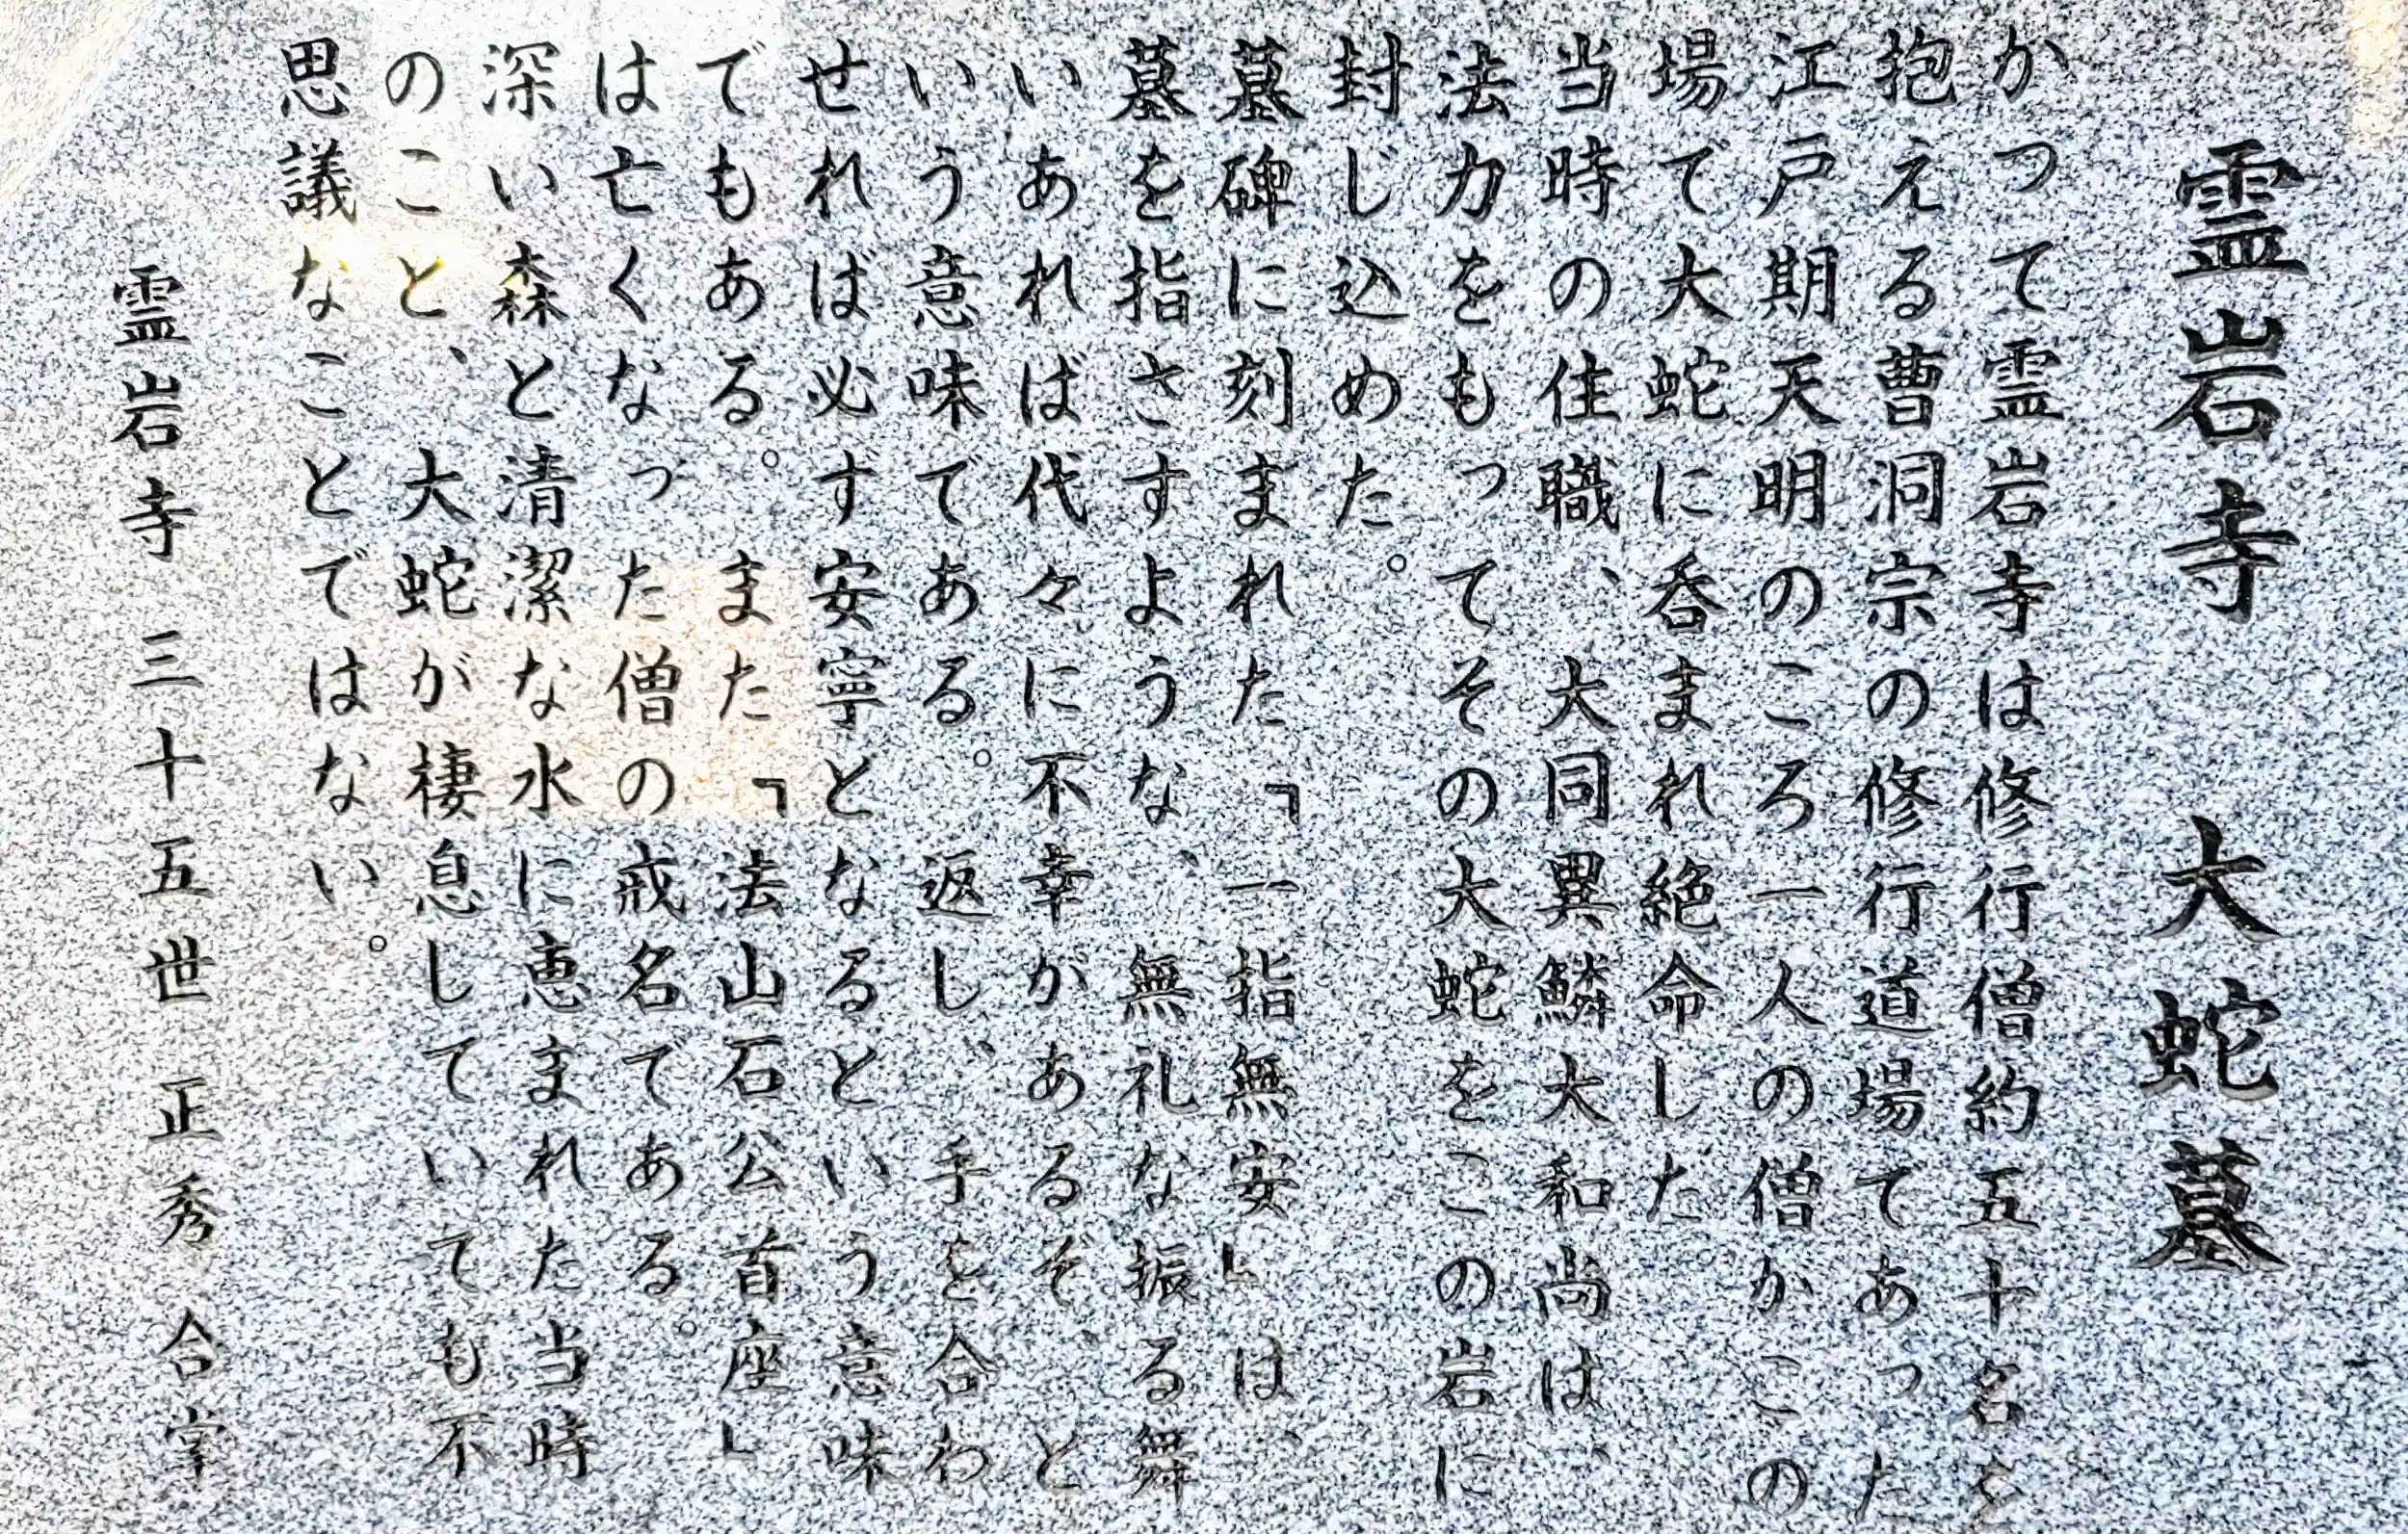 霊岩寺　大蛇墓
かつて霊岩寺は修行僧約五十名を
抱える曹洞宗の修行道場であった
江戸期天明のころ一人の僧がこの
場で大蛇に呑まれ絶命した。
当時の住職、大同異鱗大和尚は、
法力をもってその大蛇をこの岩に
封じ込めた。
墓碑に刻まれた「一指無安」は、
墓を指さすような、無礼な振る舞
いあれば代々に不幸があるぞ、と
いう意味である。返し、手を合わ
せれば必ず安寧となるという意味
でもある。また「法山石公首座」
は亡くなった僧の戒名である。
深い森と清潔な水に恵まれた当時
のこと、大蛇が棲息していても不
思議なことではない。
霊岩寺三十五世 正秀 合掌